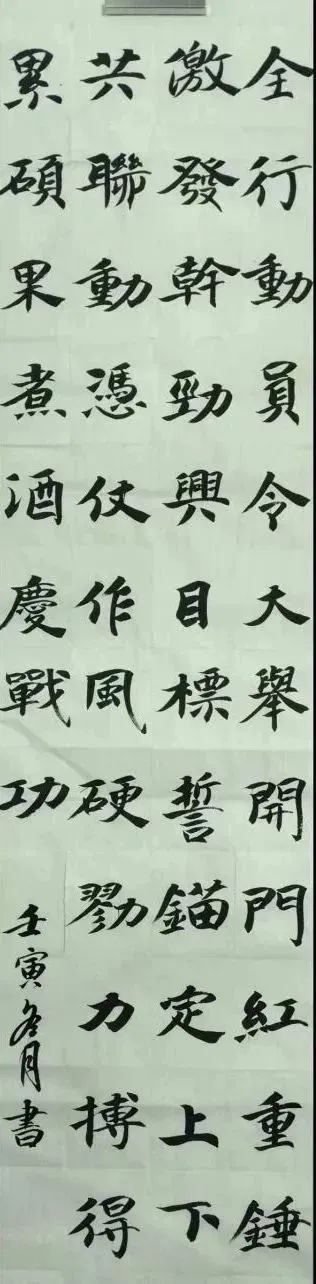 全行動員令大舉開門紅重錘
激發幹勁興目標誓錨定上下
共聯動憑仗作風硬勠力搏得
累碩果煮酒慶戰功
壬寅冬月書